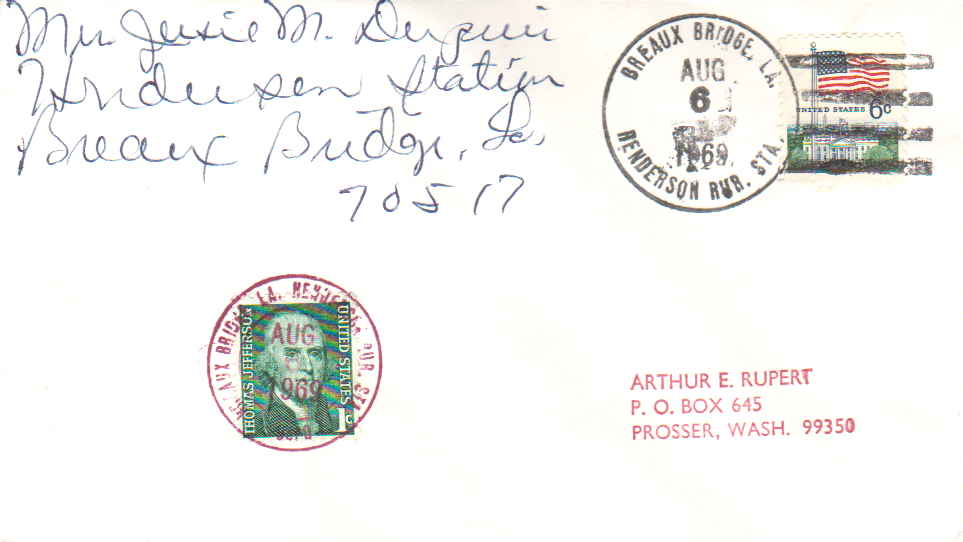 Mrs. Jessie M. Dupuis
Henderson Station
Breaux Bridge, La.
70517
BREAUX BRIDGE, LA.
AUG
6
1969
HENDERSON RUR. STA.
UNITED STATES 6c
BREAUX BRIDGE, LA. HENDERSON RUR. STA.
AUG
1969
THOMAS JEFFERSON
UNITED STATES
1c
ARTHUR E. RUPERT
P. O. BOX 645
PROSSER, WASH. 99350